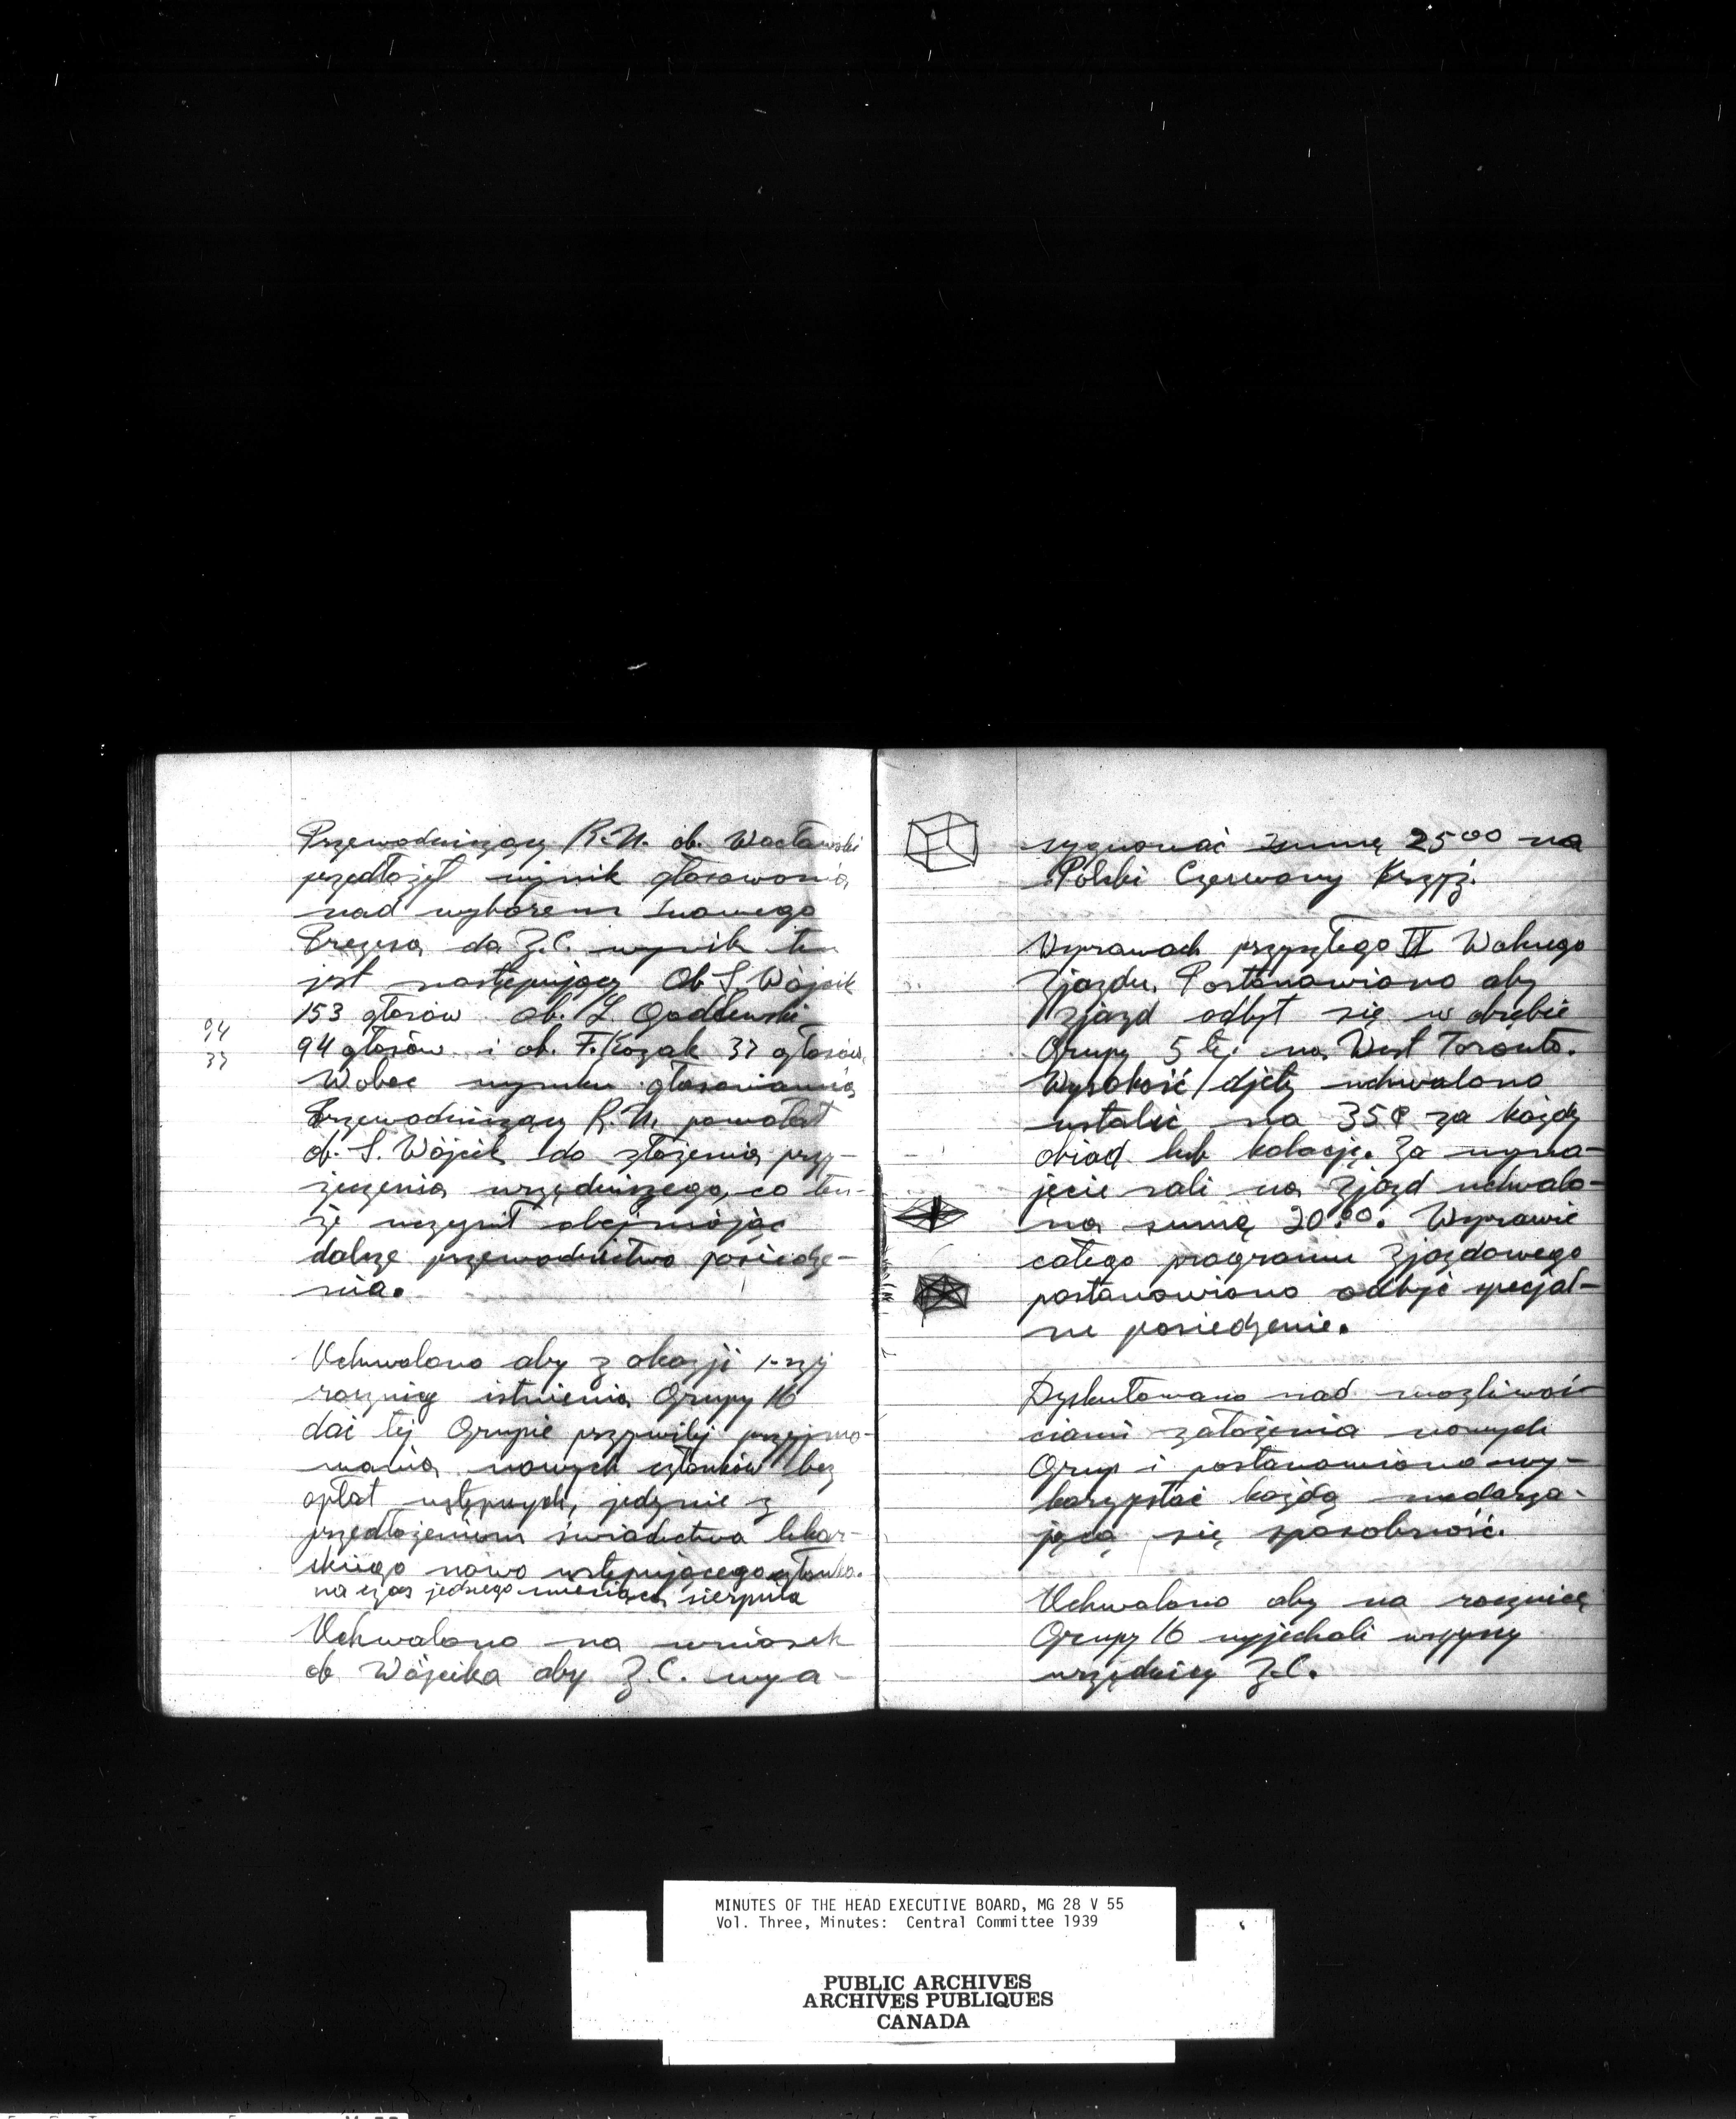 Przewodniczący R.N. ob. Wacławski
przedłożył wynik głosowania
nad wyborem nowego
Prezesa do Z.C. wynik ten
jest następujący Ob S. Wójcik
153 głosów ob. L. Godlewski
94 głosów i ob. F. Kozak 37 głosów.
94
37
Wobec wyniku głosowania
Przewodniczący R.N. powołał
ob. S. Wójcik do złożenia przy-
rzeczenia urzędniczego, co ten-
że uczynił obejmując
dalsze przewodnictwo posiedze-
nia.
Uchwalono aby z okazji 1-szej
rocznicy istnienia Grupy 16
dać tej Grupie przywilej przyjmo-
wania nowych członków bez
opłat wstępnych, jedynie z
przedłożeniem świadectwa lekar-
skiego nowo wstępującego członka.
na czas jednego miesiąca sierpnia
Uchwalono na wniosek
ob Wójcika aby Z.C. wya-
sygnować sumę 25⁰⁰ na
Polski Czerwony Krzyż.
W sprawach przyszłego II Walnego
Zjazdu. Postanowiono aby
zjazd odbył się w obrębie
Grupy 5 tej na West Toronto.
Wysokość djety uchwalono
ustalić na 35¢ za każdy
obiad lub kolację. Za wyna-
jęcie sali na Zjazd uchwalo-
no sumę 20.⁰⁰. W sprawie
całego programu Zjazdowego
postanowiono odbyć specjal-
ne posiedzenie.
Dyskutowano nad możliwoś-
ciami założenia nowych
Grup i postanowiono wy-
korzystać każdą nadarza-
jącą się sposobność.
Uchwalono aby na rocznicę
Grupy 16 wyjechali wszyscy
urzędnicy Z.C.
MINUTES OF THE HEAD EXECUTIVE BOARD, MG 28 V 55
Vol. Three, Minutes: Central Committee 1939
PUBLIC ARCHIVES
ARCHIVES PUBLIQUES
CANADA